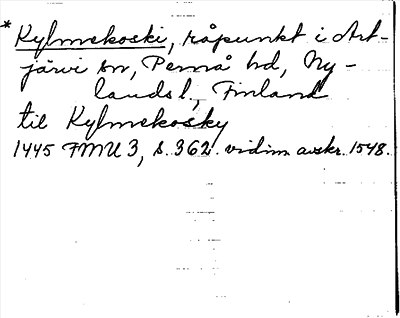 * Kylmekoski, råpunkt i Art-
järvi sn, Pernå hd, Ny-
lands l., Finland
til Kylmekosky
1445 FMU 3, s. 362. vidim. avskr. 1548.